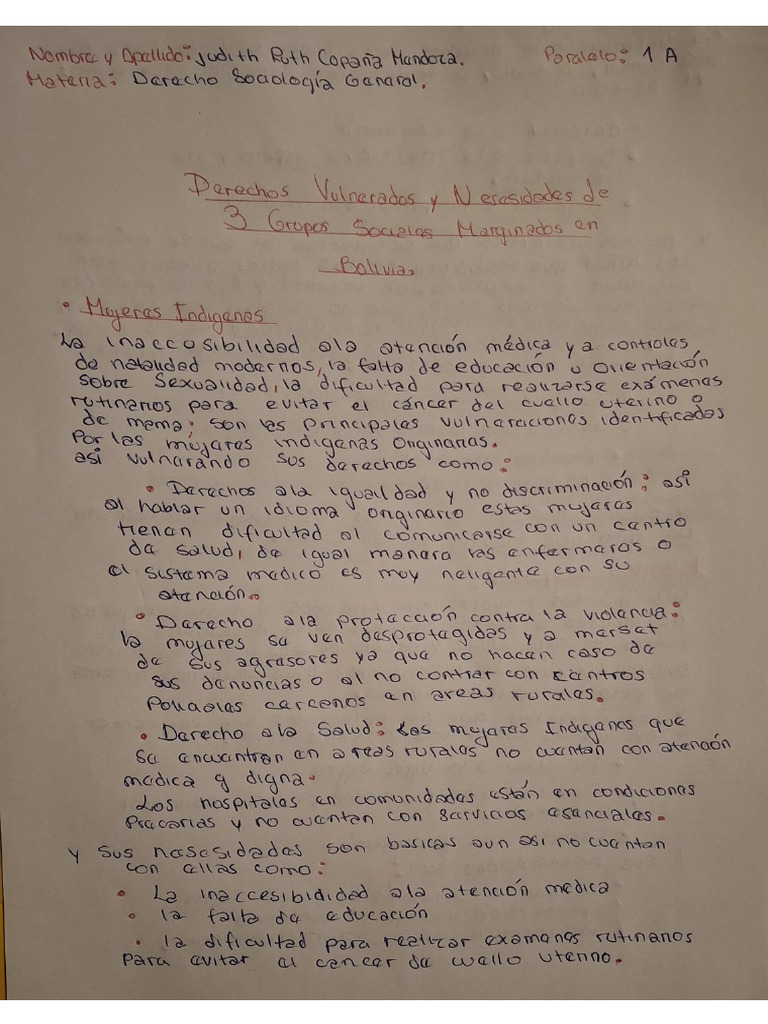 Nombre y Apellido: Judith Ruth Copaña Mendoza. Paralelo: 1 A
Materia: Derecho Sociología General.
Derechos Vulnerados y Nesesidades de
3 Grupos Sociales Marginados en
Bolivia.
• Mujeres Indigenas
La inaccosibilidad ala atención médica y a controles
de natalidad modernos, la falta de educación u Orientación
sobre Sexualidad, la dificultad para realizarse exámenes
rutinarios para evitar el cáncer del cuello uterino o
de mama: son las principales vulneraciones identificadas
Por las mujeres indigenas Originarias.
asi vulnerando sus derechos como:
• Derechos ala igualdad y no discriminación: asi
al hablar un idioma originario estas mujeres
tienen dificultad al comunicarse con un centro
de salud, de igual manera las enfermeros o
el sistema medico es muy neligente con su
atención.
• Derecho ala protección contra la violencia:
la mujeres se ven desprotegidas y a merset
de sus agresores ya que no hacen caso de
sus denuncias o al no contrar con centros
Poliaeles carcenos en areas rurales.
• Derecho ala Salud: Las mujeres Indigenas que
se encuentran en areas rurales no cuentan con atención
medica y digna.
Los hospitales en comunidades están en condiciones
Precarias y no cuentan con servicios esenciales.
y sus nesesidades son basicas aun asi no cuentan
con ellas como:
• La inaccesibididad ala atención medica
• la falta de educación
• la dificultad para realizar examenes rutinarios
para evitar el cancer de cuello uterino.